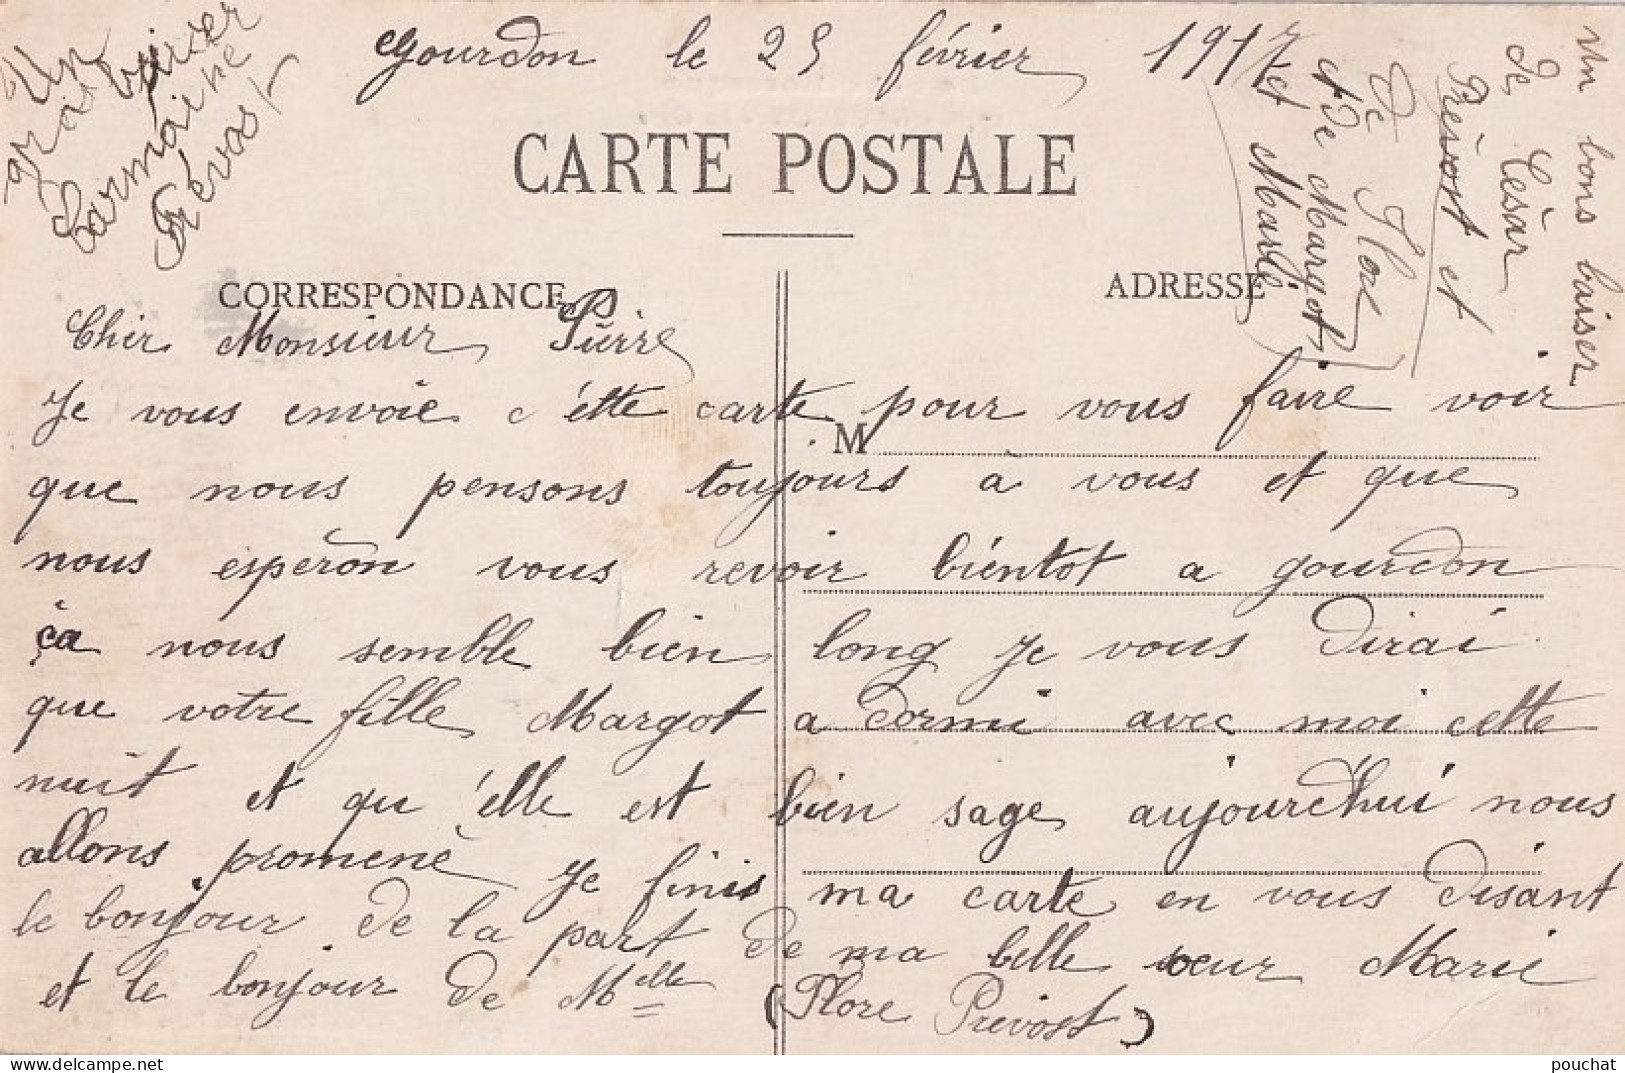 Gourdon le 25 février 1917
Un
gros baiser
Germaine
Prévost
Un bons baiser
de Cesàr
Prèvort et
de Flore
et de Margot
et Marie
CARTE POSTALE
CORRESPONDANCE
ADRESSE
Cher Monsieur Pierre
Je vous envoie c'étte carte pour vous faire voir
M
que nous pensons toujours à vous et que
nous espéron vous revoir bientot a gourdon
ça nous semble bien long je vous dirai
que votre fille Margot a dormi avec moi cette
nuit et qu'élle est bien sage aujourd'hui nous
allons promené je finis ma carte en vous disant
le bonjour de la part de ma belle sœur Marie
et le bonjour de Melle (Flore Prévost)
pouchat